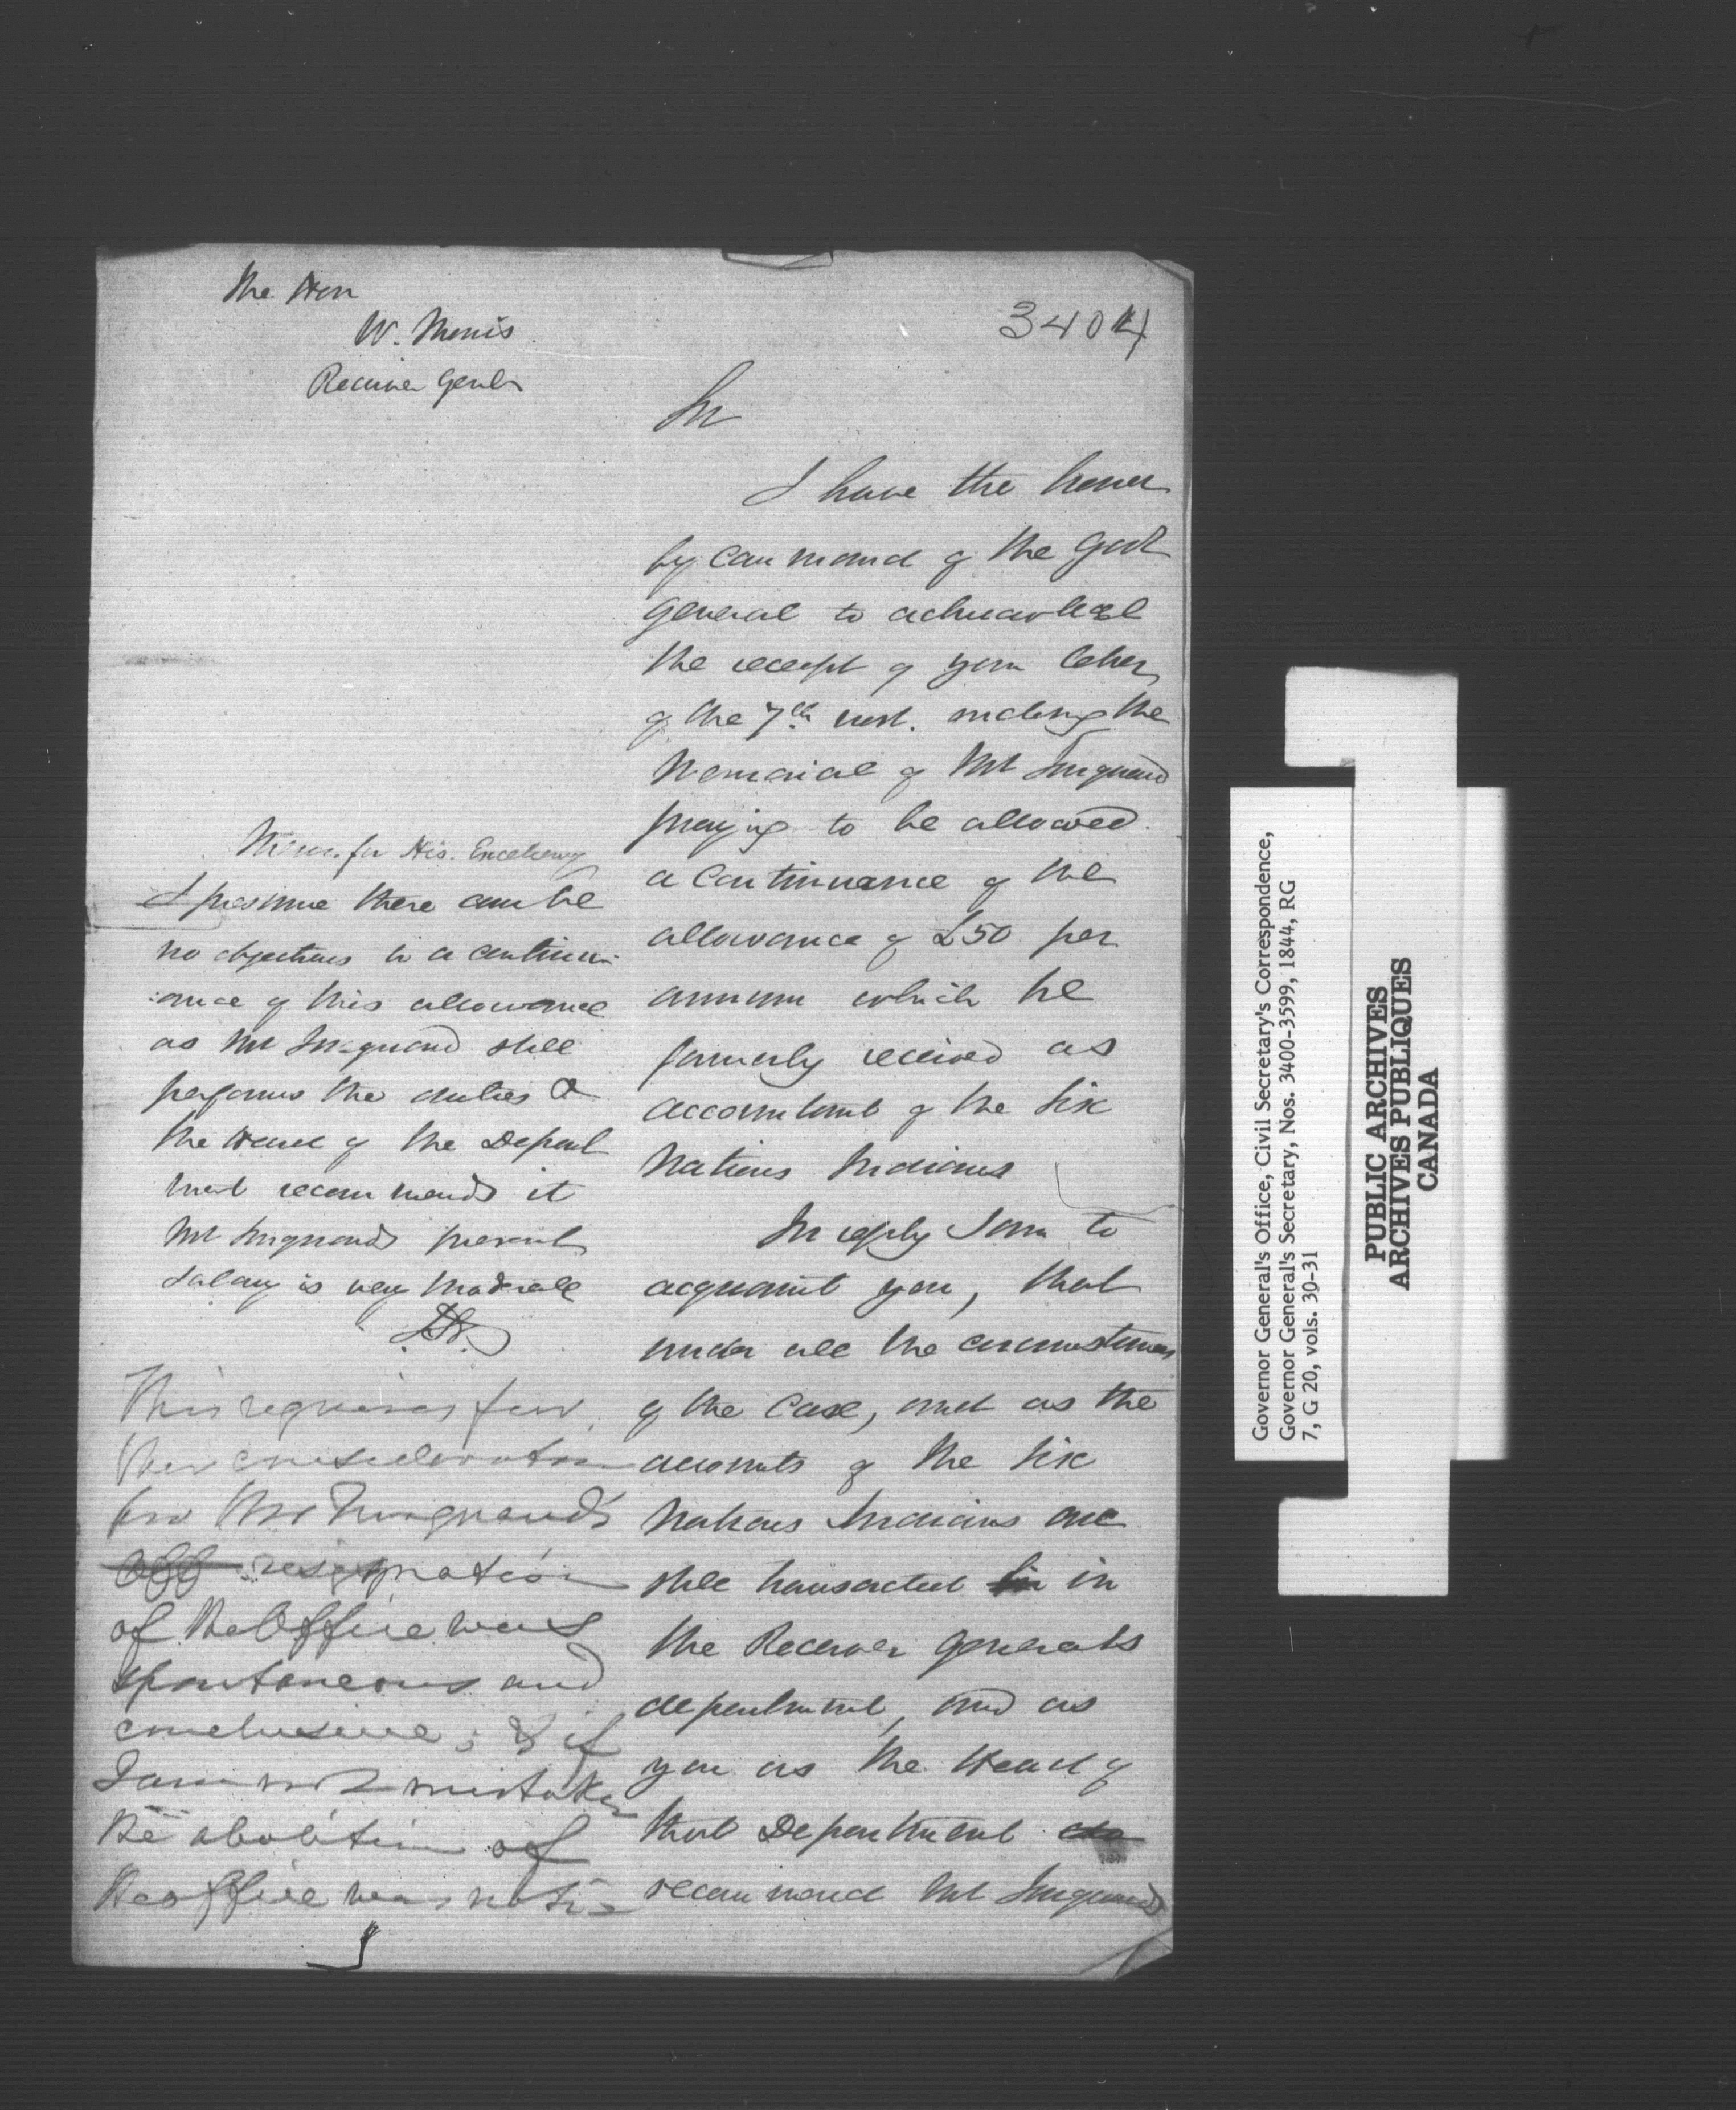 The Hon
W. Morris
Receiver Genl
3404
Sir
I have the honor
by command of the Govr
General to acknowledge
the receipt of your letter
of the 7th inst. enclosing the
Memorial of Mr Turquand
praying to be allowed
a continuance of the
allowance of £50 per
annum which he
formerly received as
accountant of the Six
Nations Indians
In reply I am to
acquaint you, that
under all the circumstances
of the case, and as the
accounts of the Six
Nations Indians are
still transacted in in
the Receiver Generals
department, and as
you as the Head of
that Department
recommend Mr Turquand
Memo. for His Excellency
I presume there can be
no objections to a continu-
:ance of this allowance
as Mr Turquand still
performs the duties &
the Head of the Depart
ment recommends it
Mr Turquands present
salary is very moderate
This requires fur
ther consideration
for Mr Turquand's
Off resignation
of the Office was
spontaneous and
conclusive; & if
I am not mistaken
the abolition of
the office was noti-
Governor General's Office, Civil Secretary's Correspondence,
Governor General's Secretary, Nos. 3400-3599, 1844, RG
7, G 20, vols. 30-31
PUBLIC ARCHIVES
ARCHIVES PUBLIQUES
CANADA